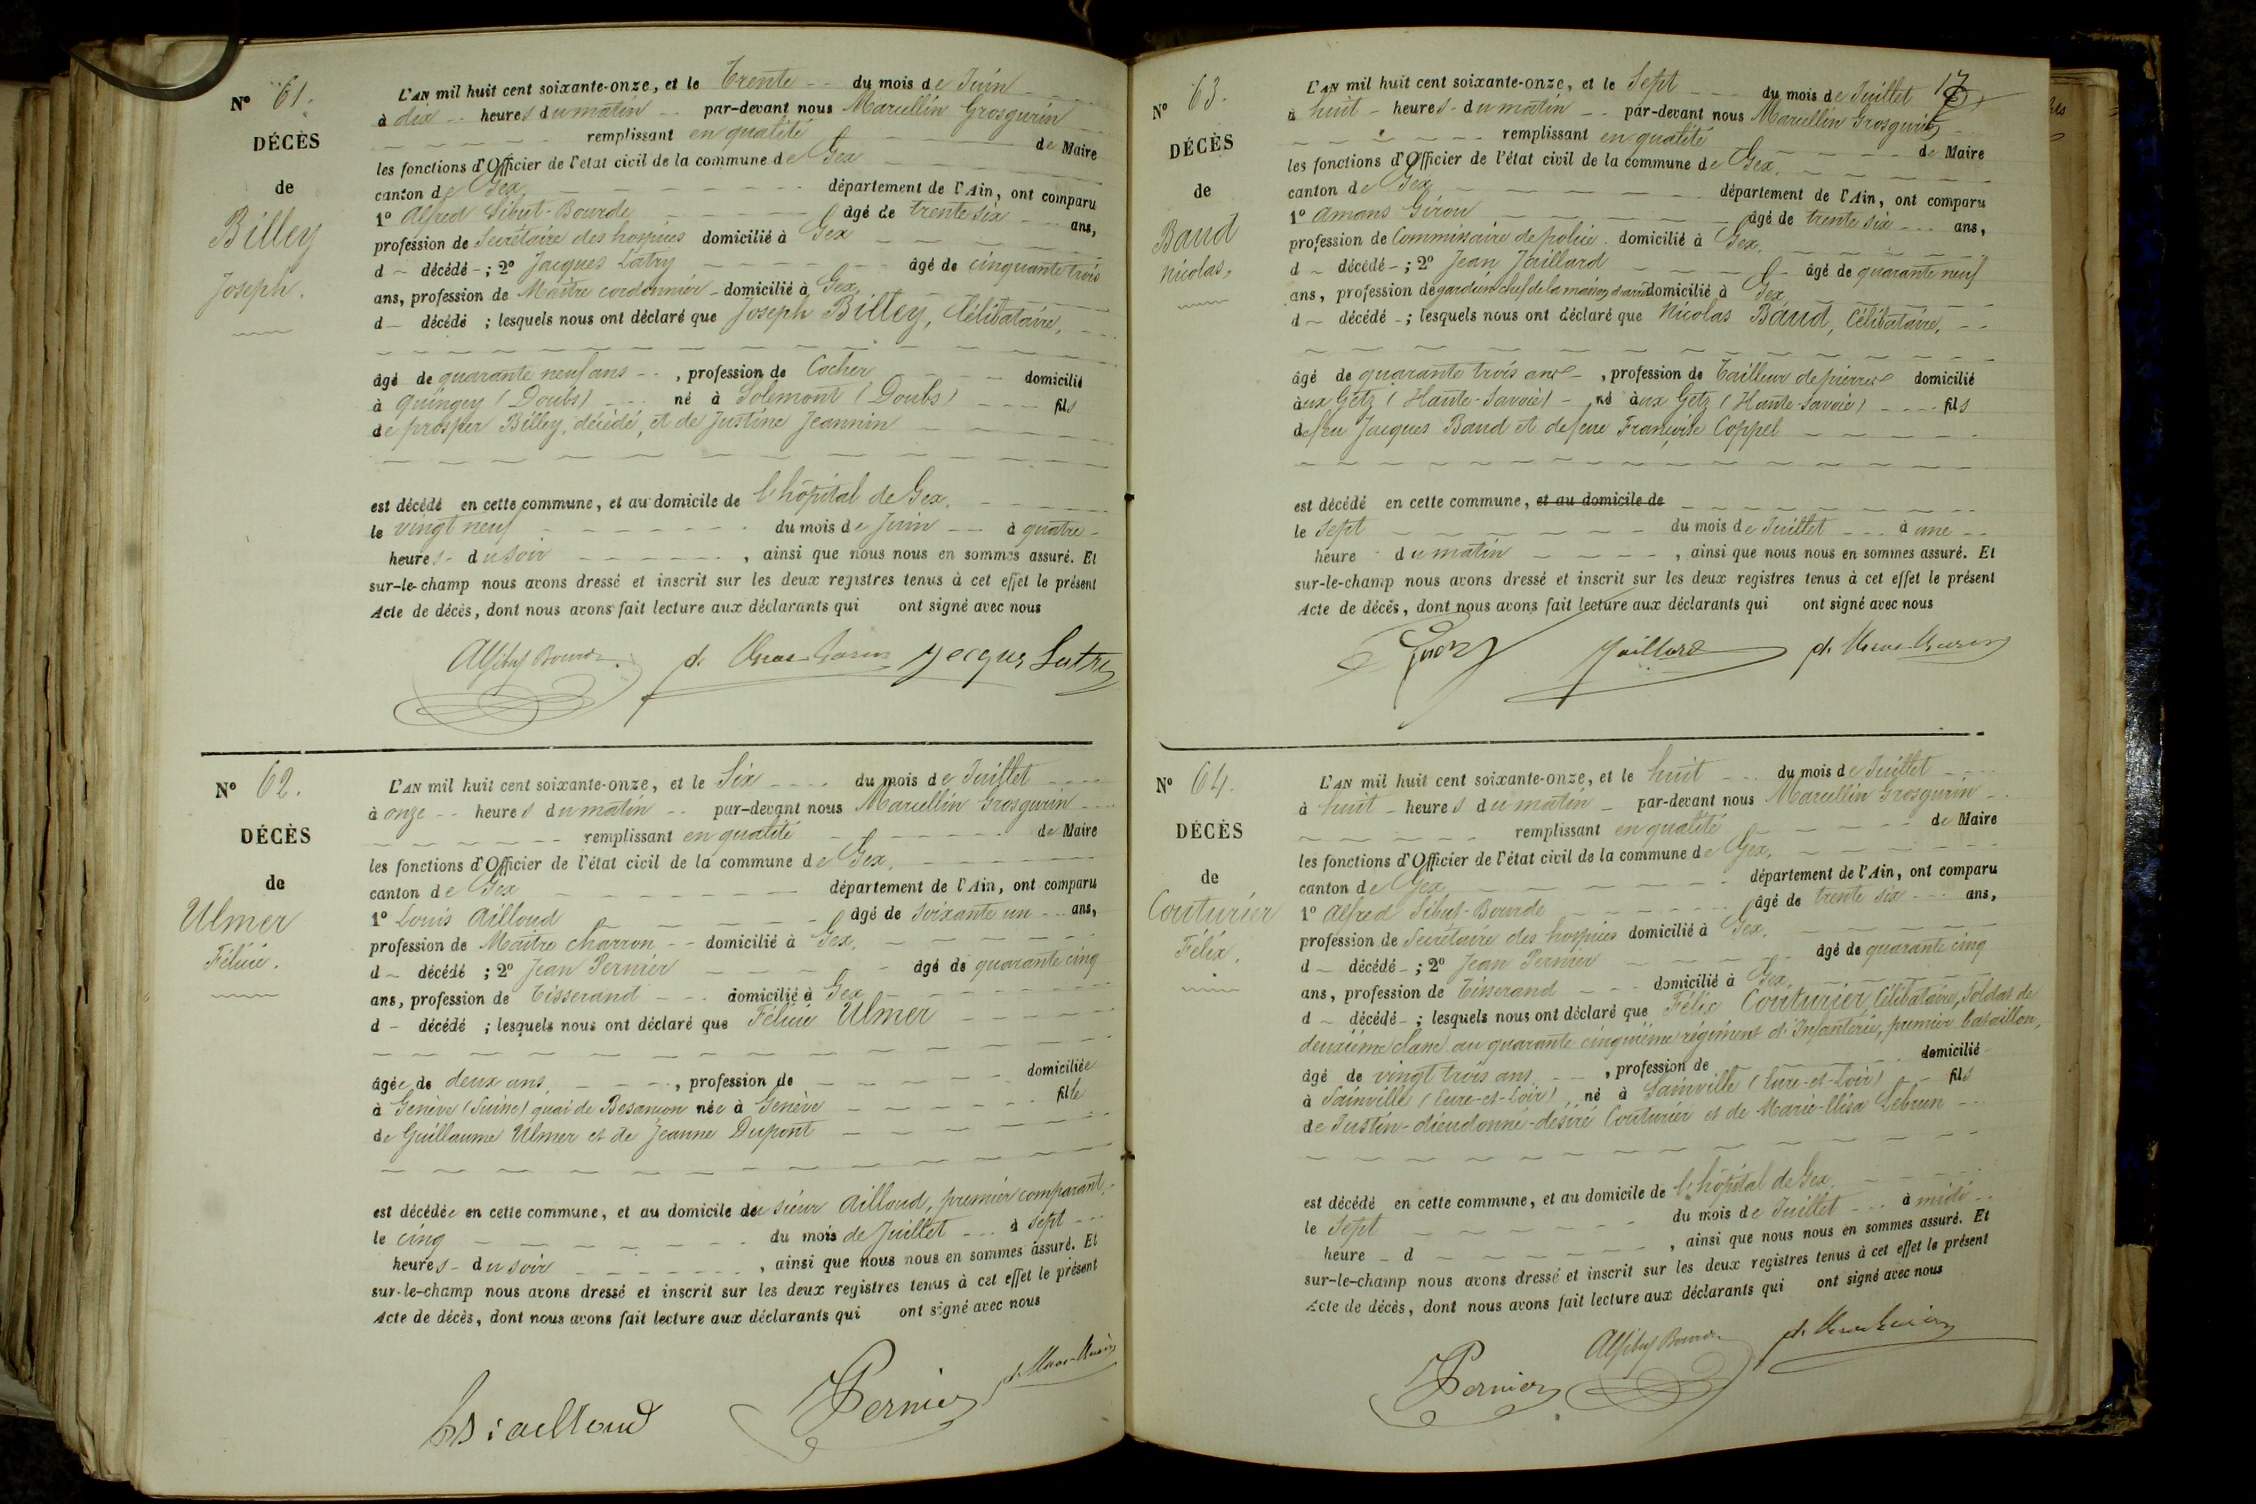 N° 61.
DÉCÈS
de
Billey
Joseph.
L'AN mil huit cent soixante-onze, et le Trente du mois de Juin
à dix heures du matin par-devant nous Marcellin Grosgurin
remplissant en qualité de Maire
les fonctions d'Officier de l'état civil de la commune de Gex
canton de Gex département de l'Ain, ont comparu
1° Alfred Sibut-Bourde âgé de trente six ans,
profession de Secrétaire des hospices domicilié à Gex
d décédé ; 2° Jacques Latry âgé de cinquante trois
ans, profession de Maître cordonnier domicilié à Gex,
d décédé ; lesquels nous ont déclaré que Joseph Billey, Célibataire,
âgé de quarante neuf ans , profession de Cocher domicilié
à Quingey (Doubs) né à Solemont (Doubs) fils
de prosper Billey, décédé, et de Justine Jeannin
est décédé en cette commune, et au domicile de l'hôpital de Gex,
le vingt neuf du mois de Juin à quatre
heures du soir , ainsi que nous nous en sommes assuré. Et
sur-le-champ nous avons dressé et inscrit sur les deux registres tenus à cet effet le présent
Acte de décès, dont nous avons fait lecture aux déclarants qui ont signé avec nous
Jacques Latry
N° 62.
DÉCÈS
de
Ulmer
Félicie.
L'AN mil huit cent soixante-onze, et le Six du mois de Juillet
à onze heures du matin par-devant nous Marcellin Grosgurin
remplissant en qualité de Maire
les fonctions d'Officier de l'état civil de la commune de Gex,
canton de Gex département de l'Ain, ont comparu
1° Louis Ailloud âgé de soixante un ans,
profession de Maître charron domicilié à Gex,
d décédé ; 2° Jean Pernier âgé de quarante cinq
ans, profession de Tisserand domicilié à Gex
d décédé ; lesquels nous ont déclaré que Félicie Ulmer
âgée de deux ans , profession de domiciliée
à Genève (Suisse) quai de Besançon née à Genève fille
de Guillaume Ulmer et de Jeanne Dupont
est décédée en cette commune, et au domicile du sieur Ailloud, premier comparant,
le cinq du mois de Juillet à sept
heures du soir , ainsi que nous nous en sommes assuré. Et
sur-le-champ nous avons dressé et inscrit sur les deux registres tenus à cet effet le présent
Acte de décès, dont nous avons fait lecture aux déclarants qui ont signé avec nous
Ls : ailloud Pernier
17
N° 63.
DÉCÈS
de
Baud
Nicolas,
L'AN mil huit cent soixante-onze, et le Sept du mois de Juillet
à huit heures du matin par-devant nous Marcellin Grosgurin
remplissant en qualité de Maire
les fonctions d'Officier de l'état civil de la commune de Gex,
canton de Gex département de l'Ain, ont comparu
1° Amans Girou âgé de trente six ans,
profession de Commissaire de police domicilié à Gex,
d décédé ; 2° Jean Jaillard âgé de quarante neuf
ans, profession de gardien chef de la maison d'arrêt domicilié à Gex
d décédé ; lesquels nous ont déclaré que Nicolas Baud, Célibataire,
âgé de quarante trois ans , profession de Tailleur de pierres domicilié
aux Getz (Haute-Savoie) né aux Getz (Haute-Savoie) fils
de feu Jacques Baud et de feue Françoise Coppel
est décédé en cette commune, et au domicile de
le Sept du mois de Juillet à une
heure du matin , ainsi que nous nous en sommes assuré. Et
sur-le-champ nous avons dressé et inscrit sur les deux registres tenus à cet effet le présent
Acte de décès, dont nous avons fait lecture aux déclarants qui ont signé avec nous
Jaillard
N° 64.
DÉCÈS
de
Couturier
Félix,
L'AN mil huit cent soixante-onze, et le huit du mois de Juillet
à huit heures du matin par-devant nous Marcellin Grosgurin
remplissant en qualité de Maire
les fonctions d'Officier de l'état civil de la commune de Gex,
canton de Gex département de l'Ain, ont comparu
1° Alfred Sibut-Bourde âgé de trente six ans,
profession de Secrétaire des hospices domicilié à Gex,
d décédé ; 2° Jean Pernier âgé de quarante cinq
ans, profession de Tisserand domicilié à Gex,
d décédé ; lesquels nous ont déclaré que Félix Couturier Célibataire, Soldat de
deuxième classe au quarante cinquième régiment d'Infanterie, premier bataillon,
âgé de vingt trois ans , profession de domicilié
à Sainville (Eure-et-Loir), né à Sainville (Eure-et-Loir) fils
de Justin-dieudonné-désiré Couturier et de Marie-Elisa Lebrun
est décédé en cette commune, et au domicile de l'hôpital de Gex
le Sept du mois de Juillet à midi
heure d , ainsi que nous nous en sommes assuré. Et
sur-le-champ nous avons dressé et inscrit sur les deux registres tenus à cet effet le présent
Acte de décès, dont nous avons fait lecture aux déclarants qui ont signé avec nous
Pernier